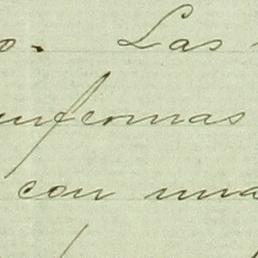 o. Las
enfermas
con una